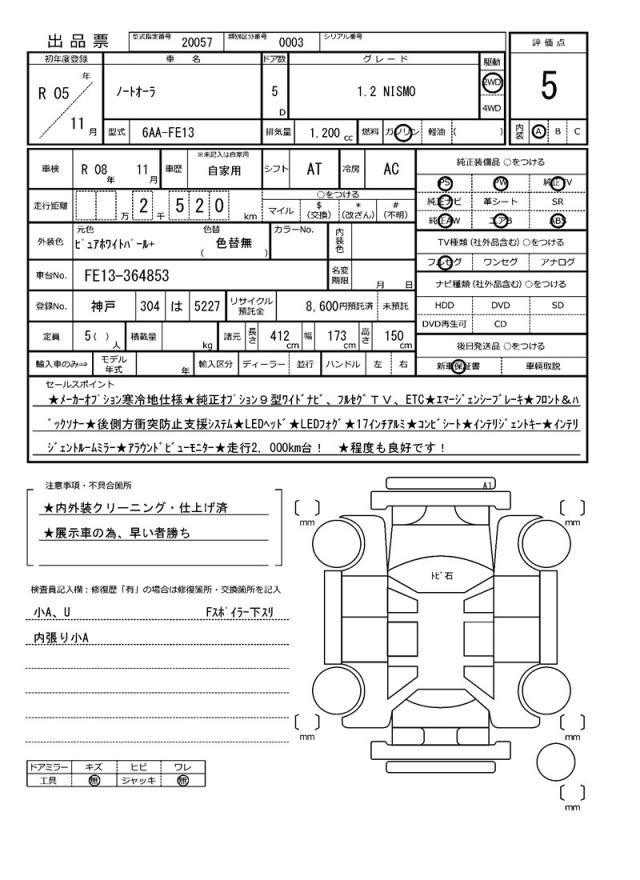 出品票 型式指定番号 20057 類別区分番号 0003 シリアル番号
初年度登録 車名 ドア数 グレード 駆動 評価点
R 05 年 11 月 ノートオーラ 5 D 1.2 NISMO 2WD 4WD 5
型式 6AA-FE13 排気量 1.200 cc 燃料 ガソリン 軽油 ( ) 内装 A B C
車検 R 08 年 11 月 車歴 ※未記入は自家用 自家用 シフト AT 冷房 AC
純正装備品 ○をつける
PS PW 純正TV
純正ナビ 革シート SR
純正AW エアB ABS
走行距離 万 2 千 5 2 0 km ○をつける マイル $ (交換) * (改ざん) # (不明)
外装色 元色 ピュアホワイトパール+ 色替 ( 色替無 ) カラーNo. 内装色
TV種類 (社外品含む) ○をつける
フルセグ ワンセグ アナログ
車台No. FE13-364853 名変期限 月 日
ナビ種類 (社外品含む) ○をつける
HDD DVD SD
DVD再生可 CD
登録No. 神戸 304 は 5227 リサイクル預託金 8,600円預託済 未預託
定員 5( )人 積載量 kg 諸元 長さ 412 cm 幅 173 cm 高さ 150 cm
後日発送品 ○をつける
新車保証書 車輌取説
輸入車のみ⇒ モデル年式 年 輸入区分 ディーラー 並行 ハンドル 左 右
セールスポイント
★メーカーオプション寒冷地仕様★純正オプション9型ワイドナビ、フルセグTV、ETC★エマージェンシーブレーキ★フロント&バ
ックソナー★後側方衝突防止支援システム★LEDヘッド★LEDフォグ★17インチアルミ★コンビシート★インテリジェントキー★インテリ
ジェントルームミラー★アラウンドビューモニター★走行2,000km台! ★程度も良好です!
注意事項・不具合箇所
★内外装クリーニング・仕上げ済
★展示車の為、早い者勝ち
検査員記入欄：修復歴「有」の場合は修復箇所・交換箇所を記入
小A、U Fスポイラー下スリ
内張り小A
ドアミラー キズ ヒビ ワレ
工具 無 ジャッキ 無
A1
トビ石
( ) mm
( ) mm
( ) mm
( ) mm
( ) mm